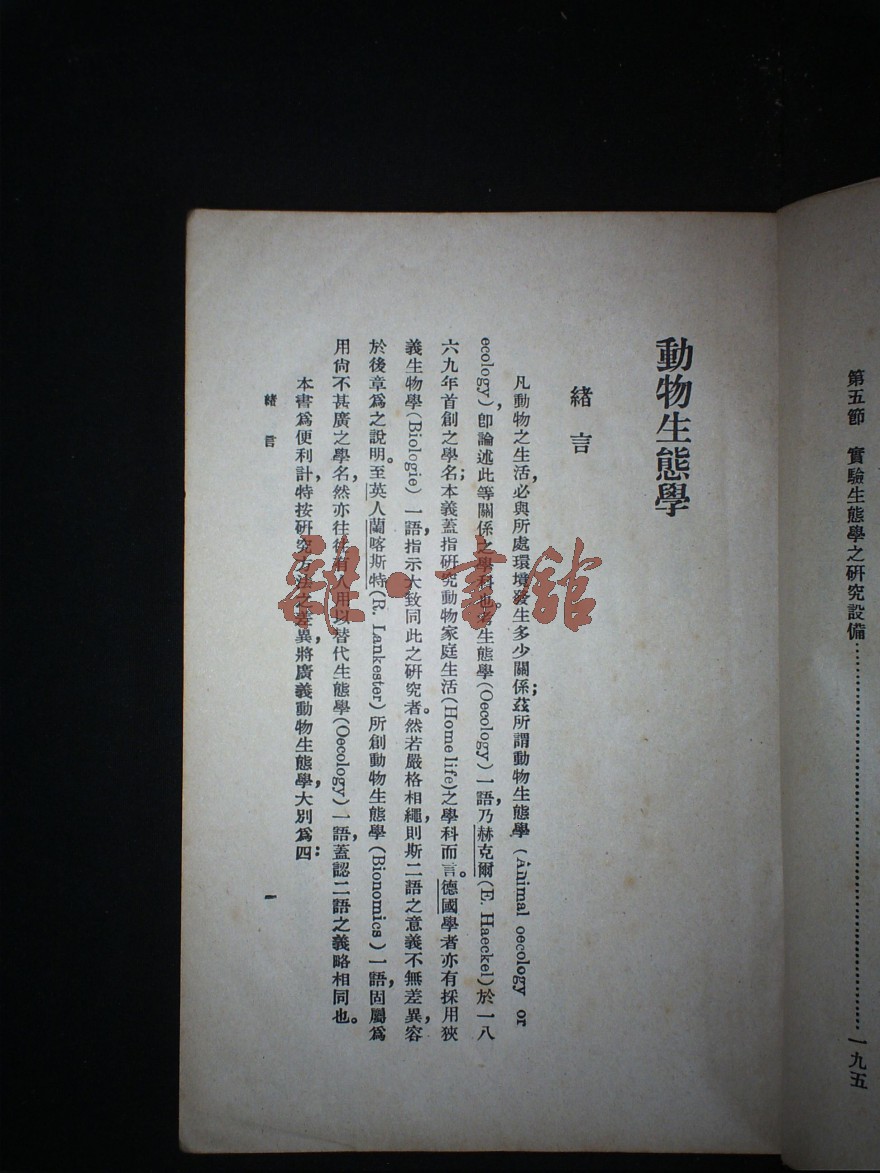 第五節　實驗生態學之研究設備……………………………………一九五
動物生態學
緒言
凡動物之生活，必與所處環境發生多少關係；茲所謂動物生態學 (Animal oecology or
ecology)，卽論述此等關係之學科也。生態學 (Oecology) 一語，乃赫克爾 (E. Haeckel) 於一八
六九年首創之學名；本義蓋指研究動物家庭生活 (Home life) 之學科而言。德國學者亦有採用狹
義生物學 (Biologie) 一語，指示大致同此之研究者。然若嚴格相繩，則斯二語之意義不無差異，容
於後章爲之說明。至英人蘭喀斯特 (R. Lankester) 所創動物生態學 (Bionomics) 一語，固屬爲
用尙不甚廣之學名，然亦往往有人用以替代生態學 (Oecology) 一語，蓋認二語之義略相同也。
本書爲便利計，特按研究方法之差異，將廣義動物生態學，大別爲四：
緒言
一
雜·書館